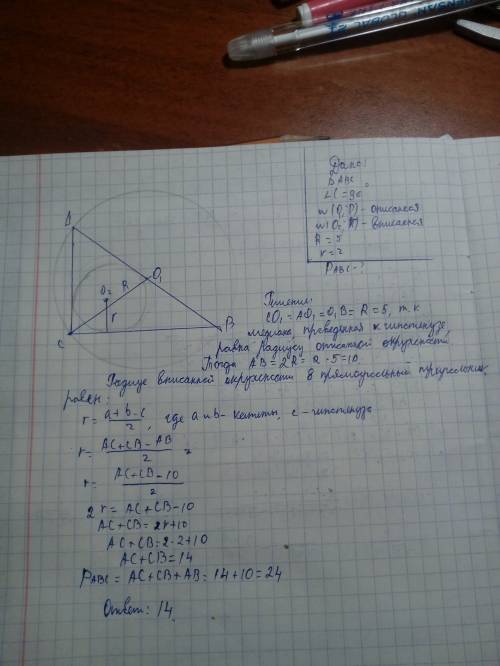 Дано:
△ABC
∠C=90°
w(O₁;R) - описанная
w(O₂;r) - вписанная
R = 5
r = 2
P_ABC - ?
A
O₂
R
O₁
r
C
B
Решение:
CO₁ = AO₁ = O₁B = R = 5, т.к
медиана, проведенная к гипотенузе,
равна радиусу описанной окружности
Тогда AB = 2R = 2·5 = 10.
Радиус вписанной окружности в прямоугольный треугольник
равен:
r = a+b-c/2, где a и b- катеты, c - гипотенуза
r = AC+CB-AB/2
r = AC+CB-10/2
2r = AC+CB-10
AC+CB = 2r+10
AC+CB = 2·2+10
AC+CB = 14
P_ABC = AC+CB+AB = 14+10 = 24
Ответ: 14.